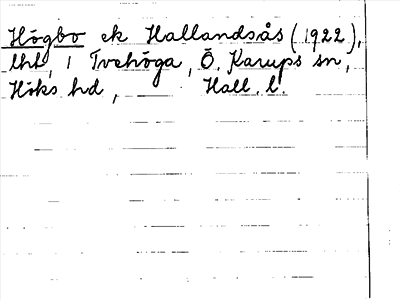 Högbo ek Hallandsås (1922),
lht, 1 Tvehöga, Ö. Karups sn,
Höks hd, Hall. l.